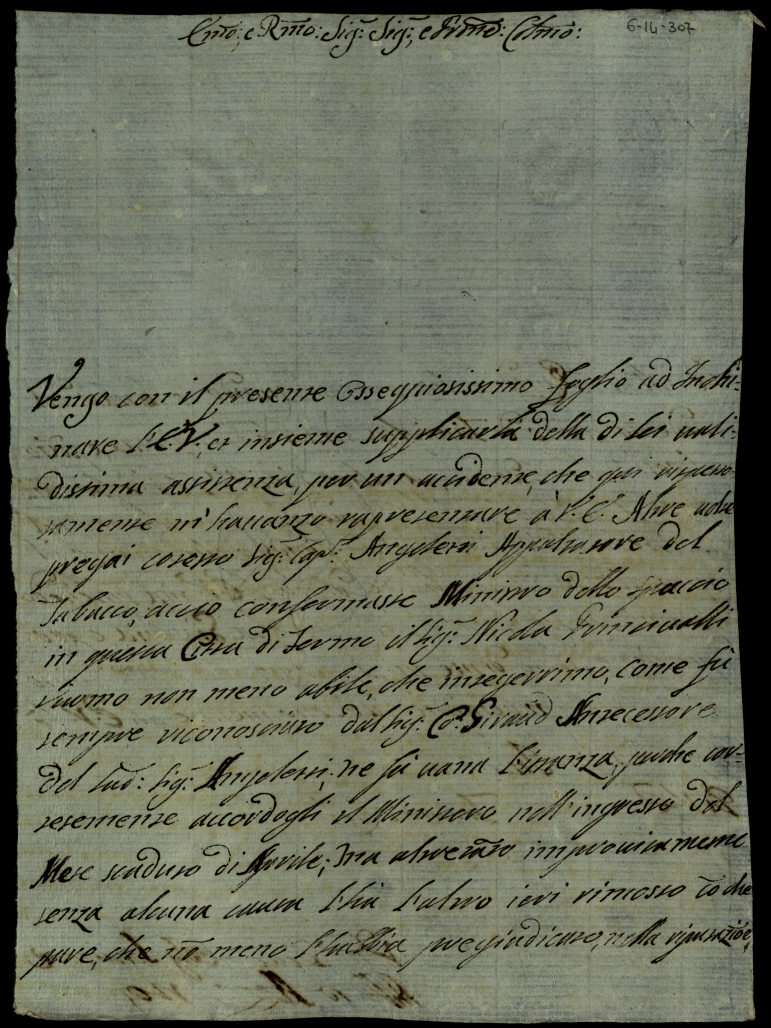 Emo: e Rmo: Sig: Sig:, e Prone: Colmo:
6-14-307
Vengo con il presente Ossequiosissimo foglio ad Inchi-
nare l'E.V., et insieme supplicarla della di lei vali-
dissima assistenza, per un accidente, che qui rispetto-
samente m'auanzo rapresentare à V.E. Altre volte
pregai cotesto Sig: Cap: Angoletti Appaltatore del
Tabacco, acciò confermasse Ministro dello spaccio
in questa Città di Fermo il Sig: Nicola Principalli
huomo non meno abile, che integerrimo, come fù
sempre riconosciuto dal Sig: Co: Giraud Antecessore
del sud: Sig: Angoletti; ne fù uana l'istanza, perche cor-
tesemente accordogli il Ministero nell'ingresso del
Mese scaduto di Aprile; Ma altretanto improuisamente
senza alcuna causa l'hà l'altro ieri rimosso lo che
pare, che nō meno l'habbia pregiudicato, nella riputazióe,